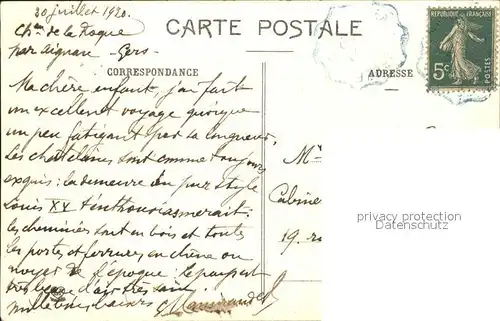 20 juillet 1920.
Chau de la Roque
par Aignan - Gers -
CARTE POSTALE
RÉPUBLIQUE FRANÇAISE
5c
POSTES
CORRESPONDANCE
ADRESSE
Ma chère enfant, j'ai fait
un excellent voyage quoique
un peu fatigant par la longueur,
Les châtelaines sont comme toujours
exquis: la demeure du pur style
Louis XV t'enthousiasmerait:
les cheminées sont en bois et toutes
les portes et ferrures en chêne ou
noyer de l'époque: Le pays est
très beau d'air très sain.
mille bons baisers
Mr
Cabine
19. r
privacy protection
Datenschutz